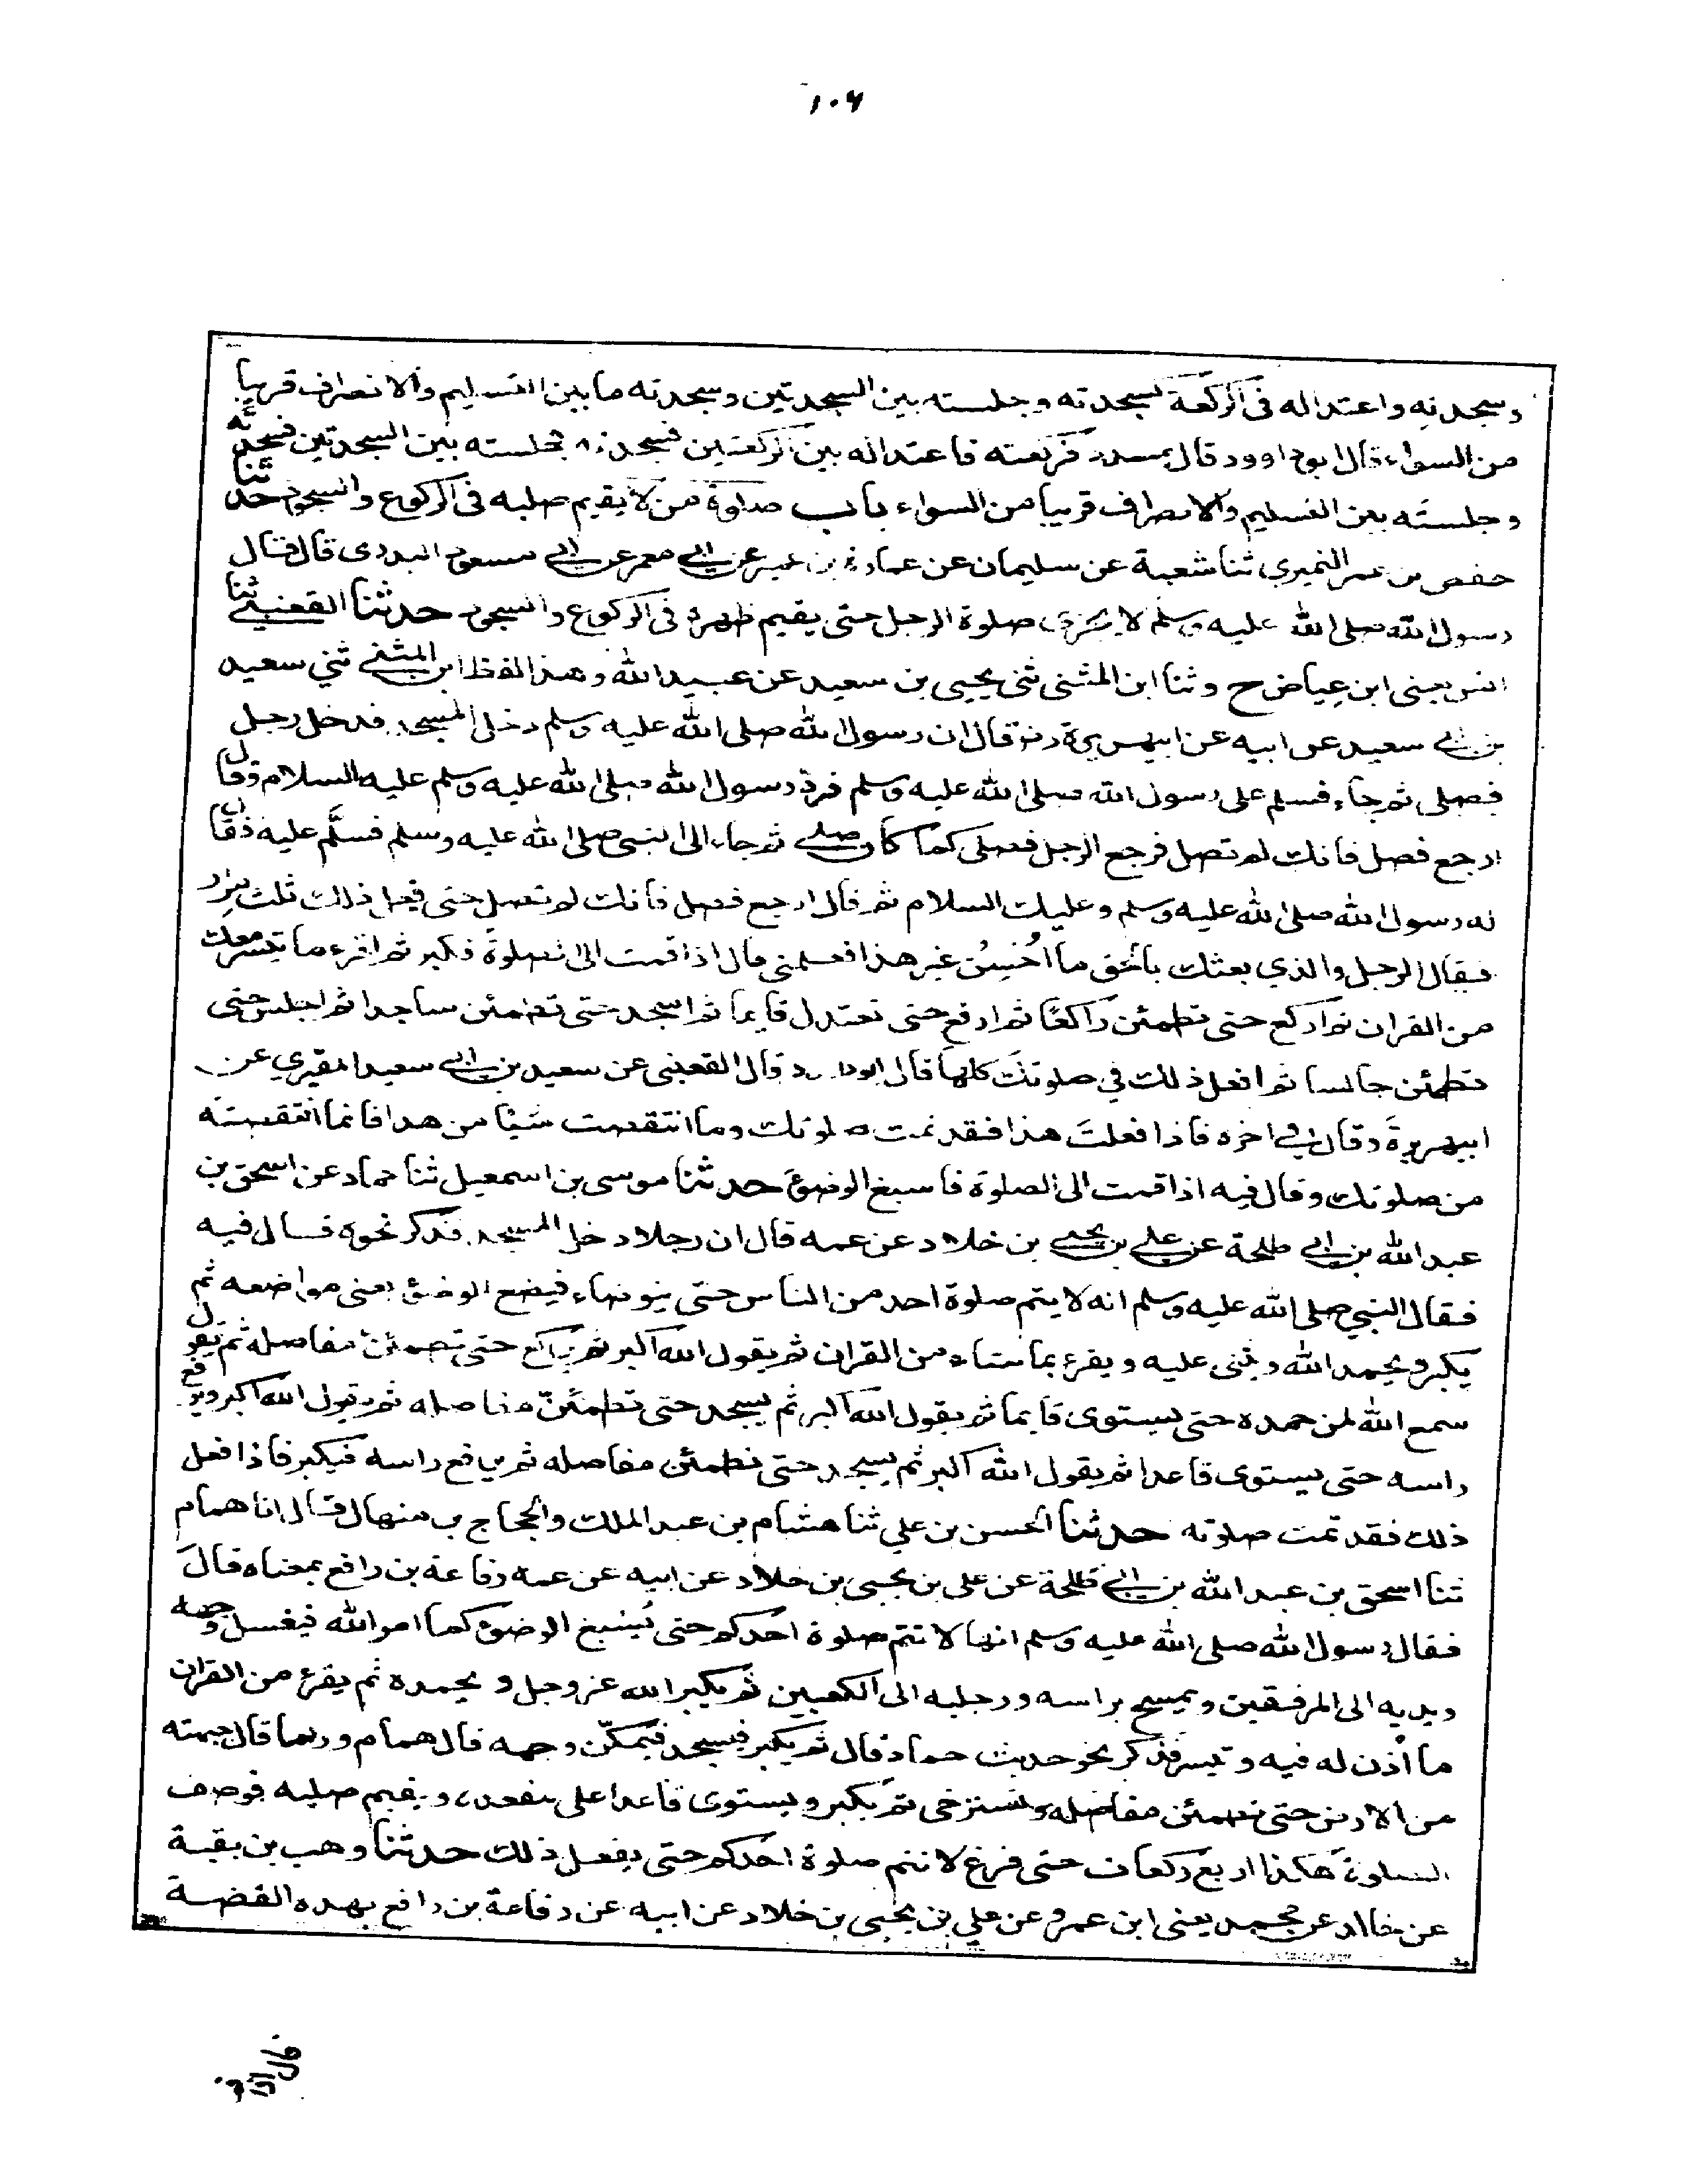 ١٠٦
وسجدته واعتداله فى الركعة لسجدته وجلسته بين السجدتين وسجدته ما بين التسليم والانصراف قريبا
من السواء قال ابوداوود قال مسدد فركعته فاعتداله بين الركعتين فسجدته فجلسته بين السجدتين فسجدته
وجلسته بين التسليم والانصراف قريبا من السواء باب صلوة من لا يقيم صلبه فى الركوع والسجود حدثنا
حفص بن عمر النميرى ثنا شعبة عن سليمان عن عمارة بن عمير عن ابى معمر عن ابى مسعود البدرى قال قال
رسول الله صلى الله عليه وسلم لا يجزى صلوة الرجل حتى يقيم ظهره فى الركوع والسجود حدثنا القعنبى ثنا
انس يعنى ابن عياض ح وثنا ابن المثنى ثنى يحيى بن سعيد عن عبيد الله وهذا لفظ ابن المثنى ثني سعيد
بن ابى سعيد عن ابيه عن ابيهريرة رض قال ان رسول الله صلى الله عليه وسلم دخل المسجد فدخل رجل
فصلى ثم جاء فسلم على رسول الله صلى الله عليه وسلم فرد رسول الله صلى الله عليه وسلم عليه السلام وقال
ارجع فصل فانك لم تصل فرجع الرجل فصلى كما كان صلى ثم جاء الى النبى صلى الله عليه وسلم فسلم عليه فقال
له رسول الله صلى الله عليه وسلم وعليك السلام ثم قال ارجع فصل فانك لم تصل حتى فعل ذلك ثلث مرار
فقال الرجل والذي بعثك بالحق ما اُحْسِنُ غير هذا فعلمنى قال اذا قمت الى الصلوة فكبر ثم اقرء ما تيسر معك
من القران ثم اركع حتى تطمئن راكعًا ثم ارفع حتى تعتدل قايما ثم اسجد حتى تطمئن ساجدا ثم اجلس حتى
تطمئن جالسا ثم افعل ذلك في صلوتك كلها قال ابوداود قال القعنبى عن سعيد بن ابى سعيد المقبري عن
ابيهريرة وقال فى اخره فاذا فعلتَ هذا فقد تمت صلوتك وما انتقصت شيئا من هذا فانما انتقصته
من صلوتك وقال فيه اذا قمت الى الصلوة فاسبغ الوضوء حدثنا موسى بن اسمعيل ثنا حماد عن اسحق بن
عبد الله بن ابى طلحة عن على بن يحيى بن خلاد عن عمه قال ان رجلا دخل المسجد فذكر نحوه قال فيه
فقال النبي صلى الله عليه وسلم انه لا يتم صلوة احد من الناس حتى يتوضاء فيضع الوضوء يعنى مواضعه ثم
يكبر ويحمد الله ويثنى عليه ويقرء بما شاء من القران ثم يقول الله اكبر ثم يركع حتى تطمئن مفاصله ثم يقول
سمع الله لمن حمده حتى يستوى قايما ثم يقول الله اكبر ثم يسجد حتى تطمئنّ مفاصله ثم يقول الله اكبر ويرفع
راسه حتى يستوى قاعدا ثم يقول الله اكبر ثم يسجد حتى تطمئن مفاصله ثم يرفع راسه فيكبر فاذا فعل
ذلك فقد تمت صلوته حدثنا الحسن بن علي ثنا هشام بن عبد الملك والحجاج بن منهال قال انا همام
ثنا اسحق بن عبد الله بن ابى طلحة عن على بن يحيى بن خلاد عن ابيه عن عمه رفاعة بن رافع بمعناه قال
فقال رسول الله صلى الله عليه وسلم انها لا تتم صلوة احدكم حتى يُسْبغ الوضوء كما امر الله فيغسل وجهه
ويديه الى المرفقين ويمسح براسه ورجليه الى الكعبين ثم يكبر الله عز وجل ويحمده ثم يقرء من القران
ما اُذن له فيه وتيسر فذكر نحو حديث حماد قال ثم يكبر فيسجد فيمكّن وجهه قال همام وربما قال جبهته
من الارض حتى تطمئن مفاصله وتسترخى ثم يكبر ويستوى قاعدا على مقعده ويقيم صلبه فوصف
الصلوة هكذا اربع ركعات حتى فرغ لا تتم صلوة احدكم حتى يفعل ذلك حدثنا وهب بن بقية
عن خالد عن محمد يعنى ابن عمرو عن علي بن يحيى بن خلاد عن ابيه عن رفاعة بن رافع بهذه القصة
قال